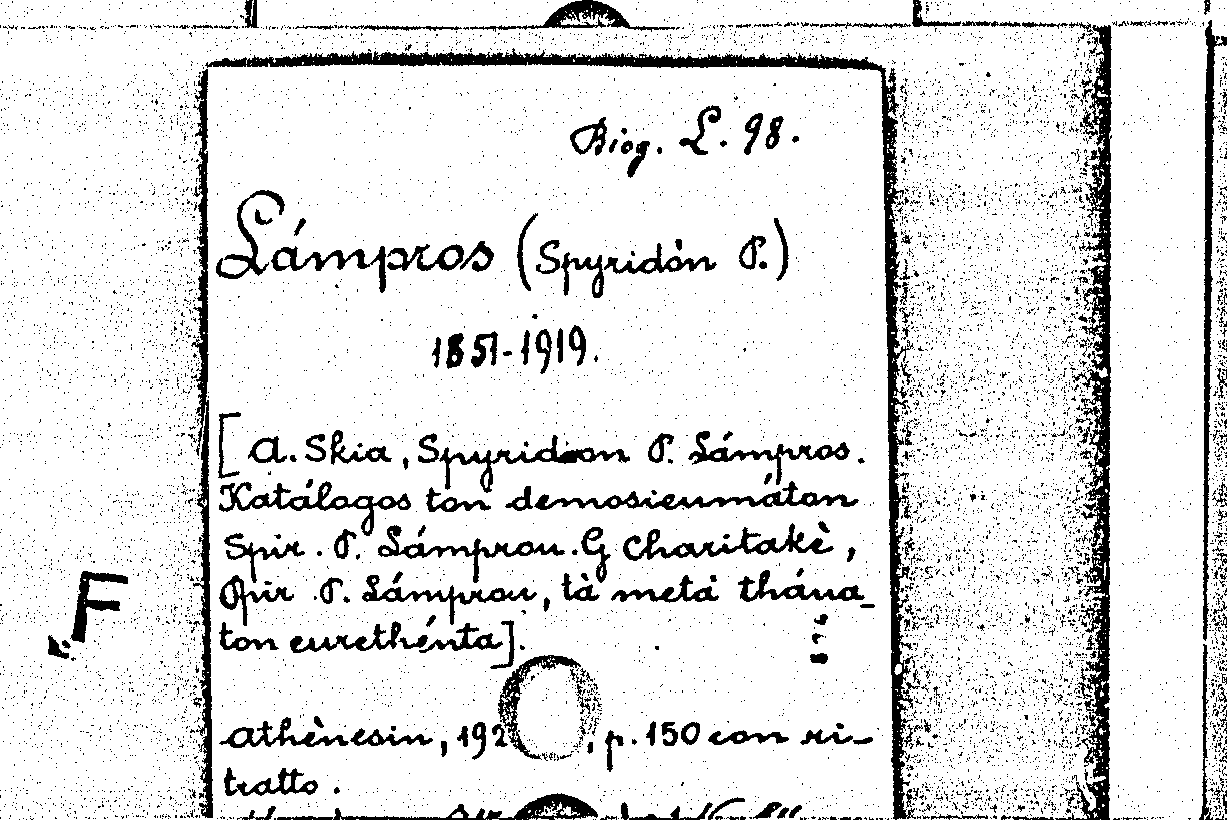 Biog. L. 98.
Lámpros (Spyridòn P.)
1851-1919.
[A. Skia, Spyrideon P. Lámpros.
Katálagos ton demosieumáton
Spir. P. Lámprou. G Charitakè,
Spir P. Lámprou, tà metá tháua_
ton eurethénta].
Athènesin, 192 , p. 150 con ri_
tratto.
F